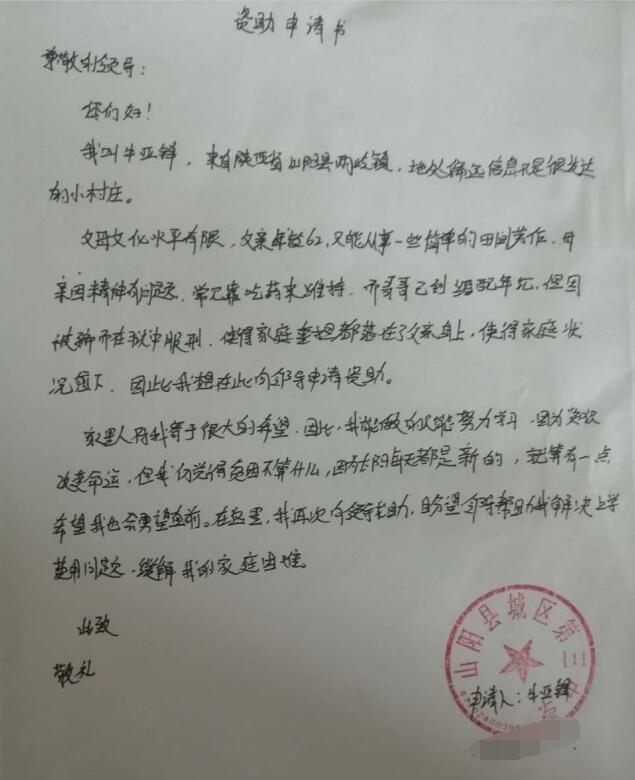 资助申请书
尊敬的领导：
您们好！
我叫牛亚锋，来自陕西省山阳县两岭镇，地处偏远信息不是很发达
的小村庄。
父母文化水平有限，父亲年龄62，只能从事一些简单的田间劳作，母
亲因精神有问题，常见靠吃药来维持，而哥哥已到婚配年纪，但因
被骗而在狱中服刑，使得家庭重担都落在了父亲身上，使得家庭状
况愈下，因此我想在此向领导申请资助。
家里人将我寄于很大的希望，因此，我能做的只能努力学习，因为知识
改变命运，但我仍觉得贫困不算什么，因为太阳每天都是新的，就算有一点
希望我也会勇望直前。在这里，我再次向领导求助，盼望领导帮助我解决上学
费用问题，缓解我的家庭困难。
此致
敬礼
山阳县城区第三
申请人：牛亚锋